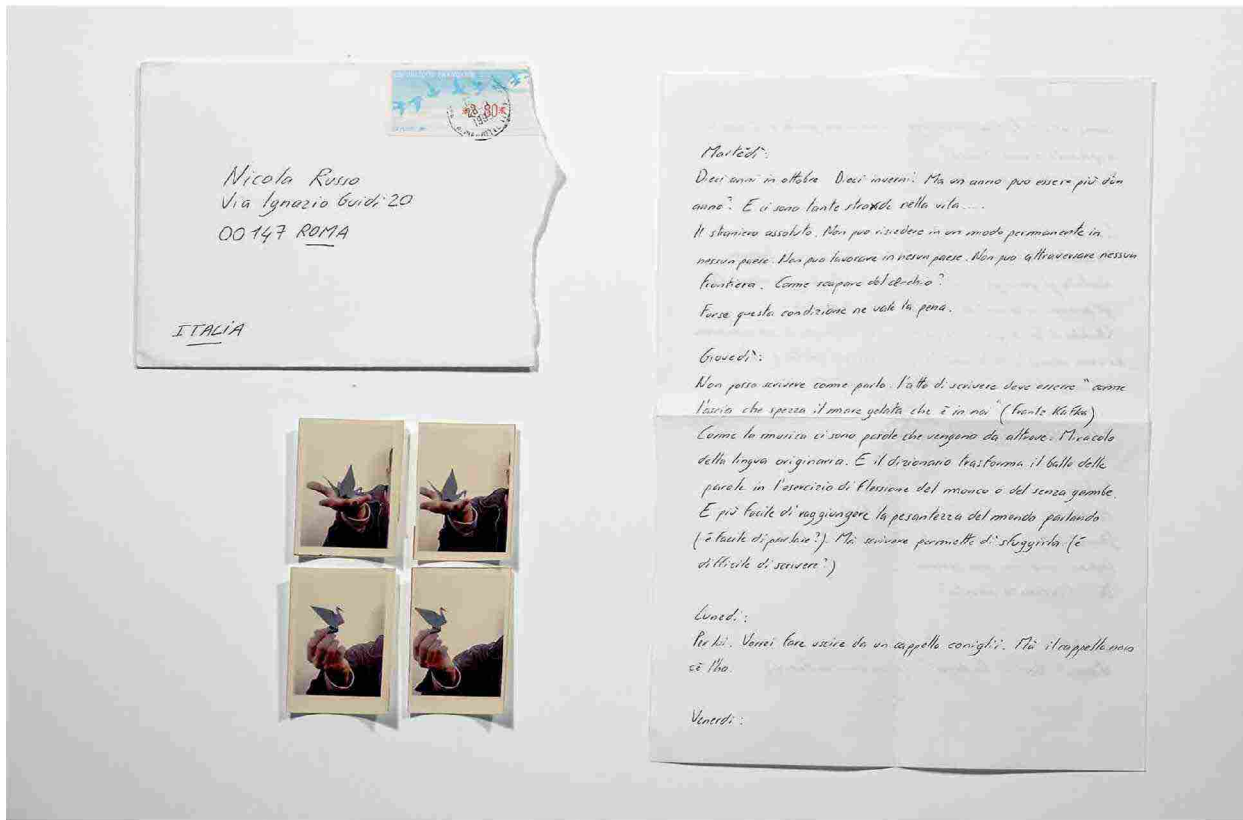 REPUBLIQUE FRANCAISE
Nicola Russo
Via Ignazio Guidi 20
00147 ROMA
ITALIA
Martèdì:
Dieci anni in ottobre Dieci inverni. Ma un anno puo essere più d'un
anno? E ci sono tante strade nella vita....
Il straniero assoluto. Non puo risiedere in un modo permanente in
nessun paese. Non puo lavorare in nesun paese. Non puo attraversare nessun
frontiera. Come scapare del cerchio?
Forse questa condizione ne vale la pena.
Giovedì:
Non posso scrivere come parlo. l'atto di scrivere deve essere "come
l'ascia che spezza il mare gelata che è in noi" (Frantz Kafka)
Come la musica ci sono parole che vengono da altrove. Miracolo
della lingua originaria. E il dizionario trasforma il ballo delle
parole in l'esercizio di flessione del monco o del senza gambe.
E più facile di raggiungere la pesantezza del mondo parlando
(è facile di parlare?). Mà scrivere permette di sfuggirla (è
difficile di scrivere?)
Lunedì:
Per lui. Vorrei fare uscire da un cappello conigli. Mà il cappello non
cè l'ho.
Venerdì: